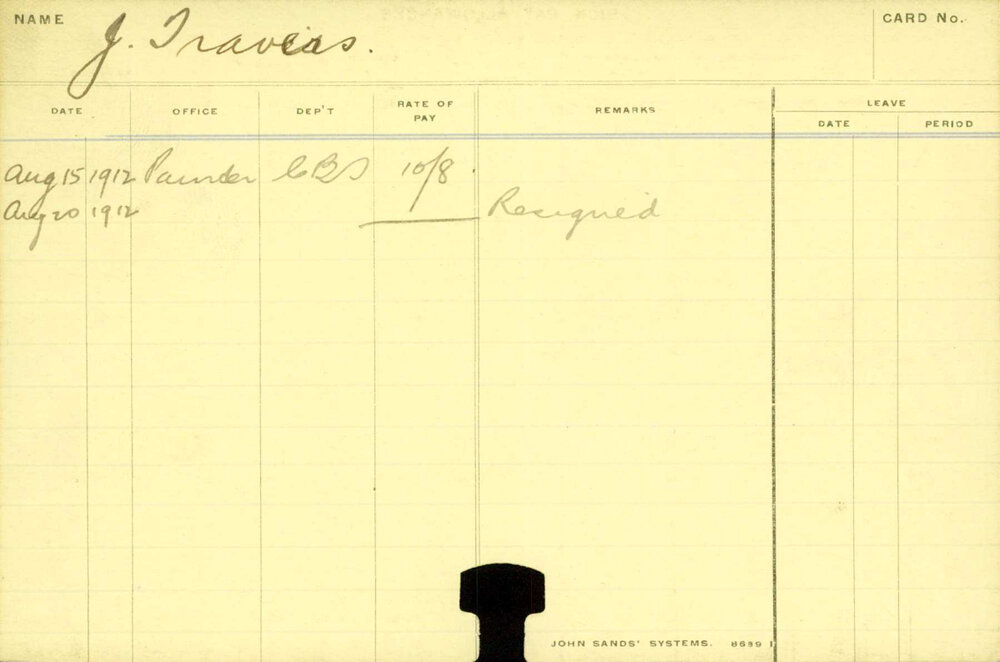 NAME J. Travers. CARD No.
DATE OFFICE DEP'T RATE OF PAY REMARKS LEAVE
DATE PERIOD
Aug 15 1912 10/8
Aug 20 1912 Resigned
JOHN SANDS' SYSTEMS. 8699